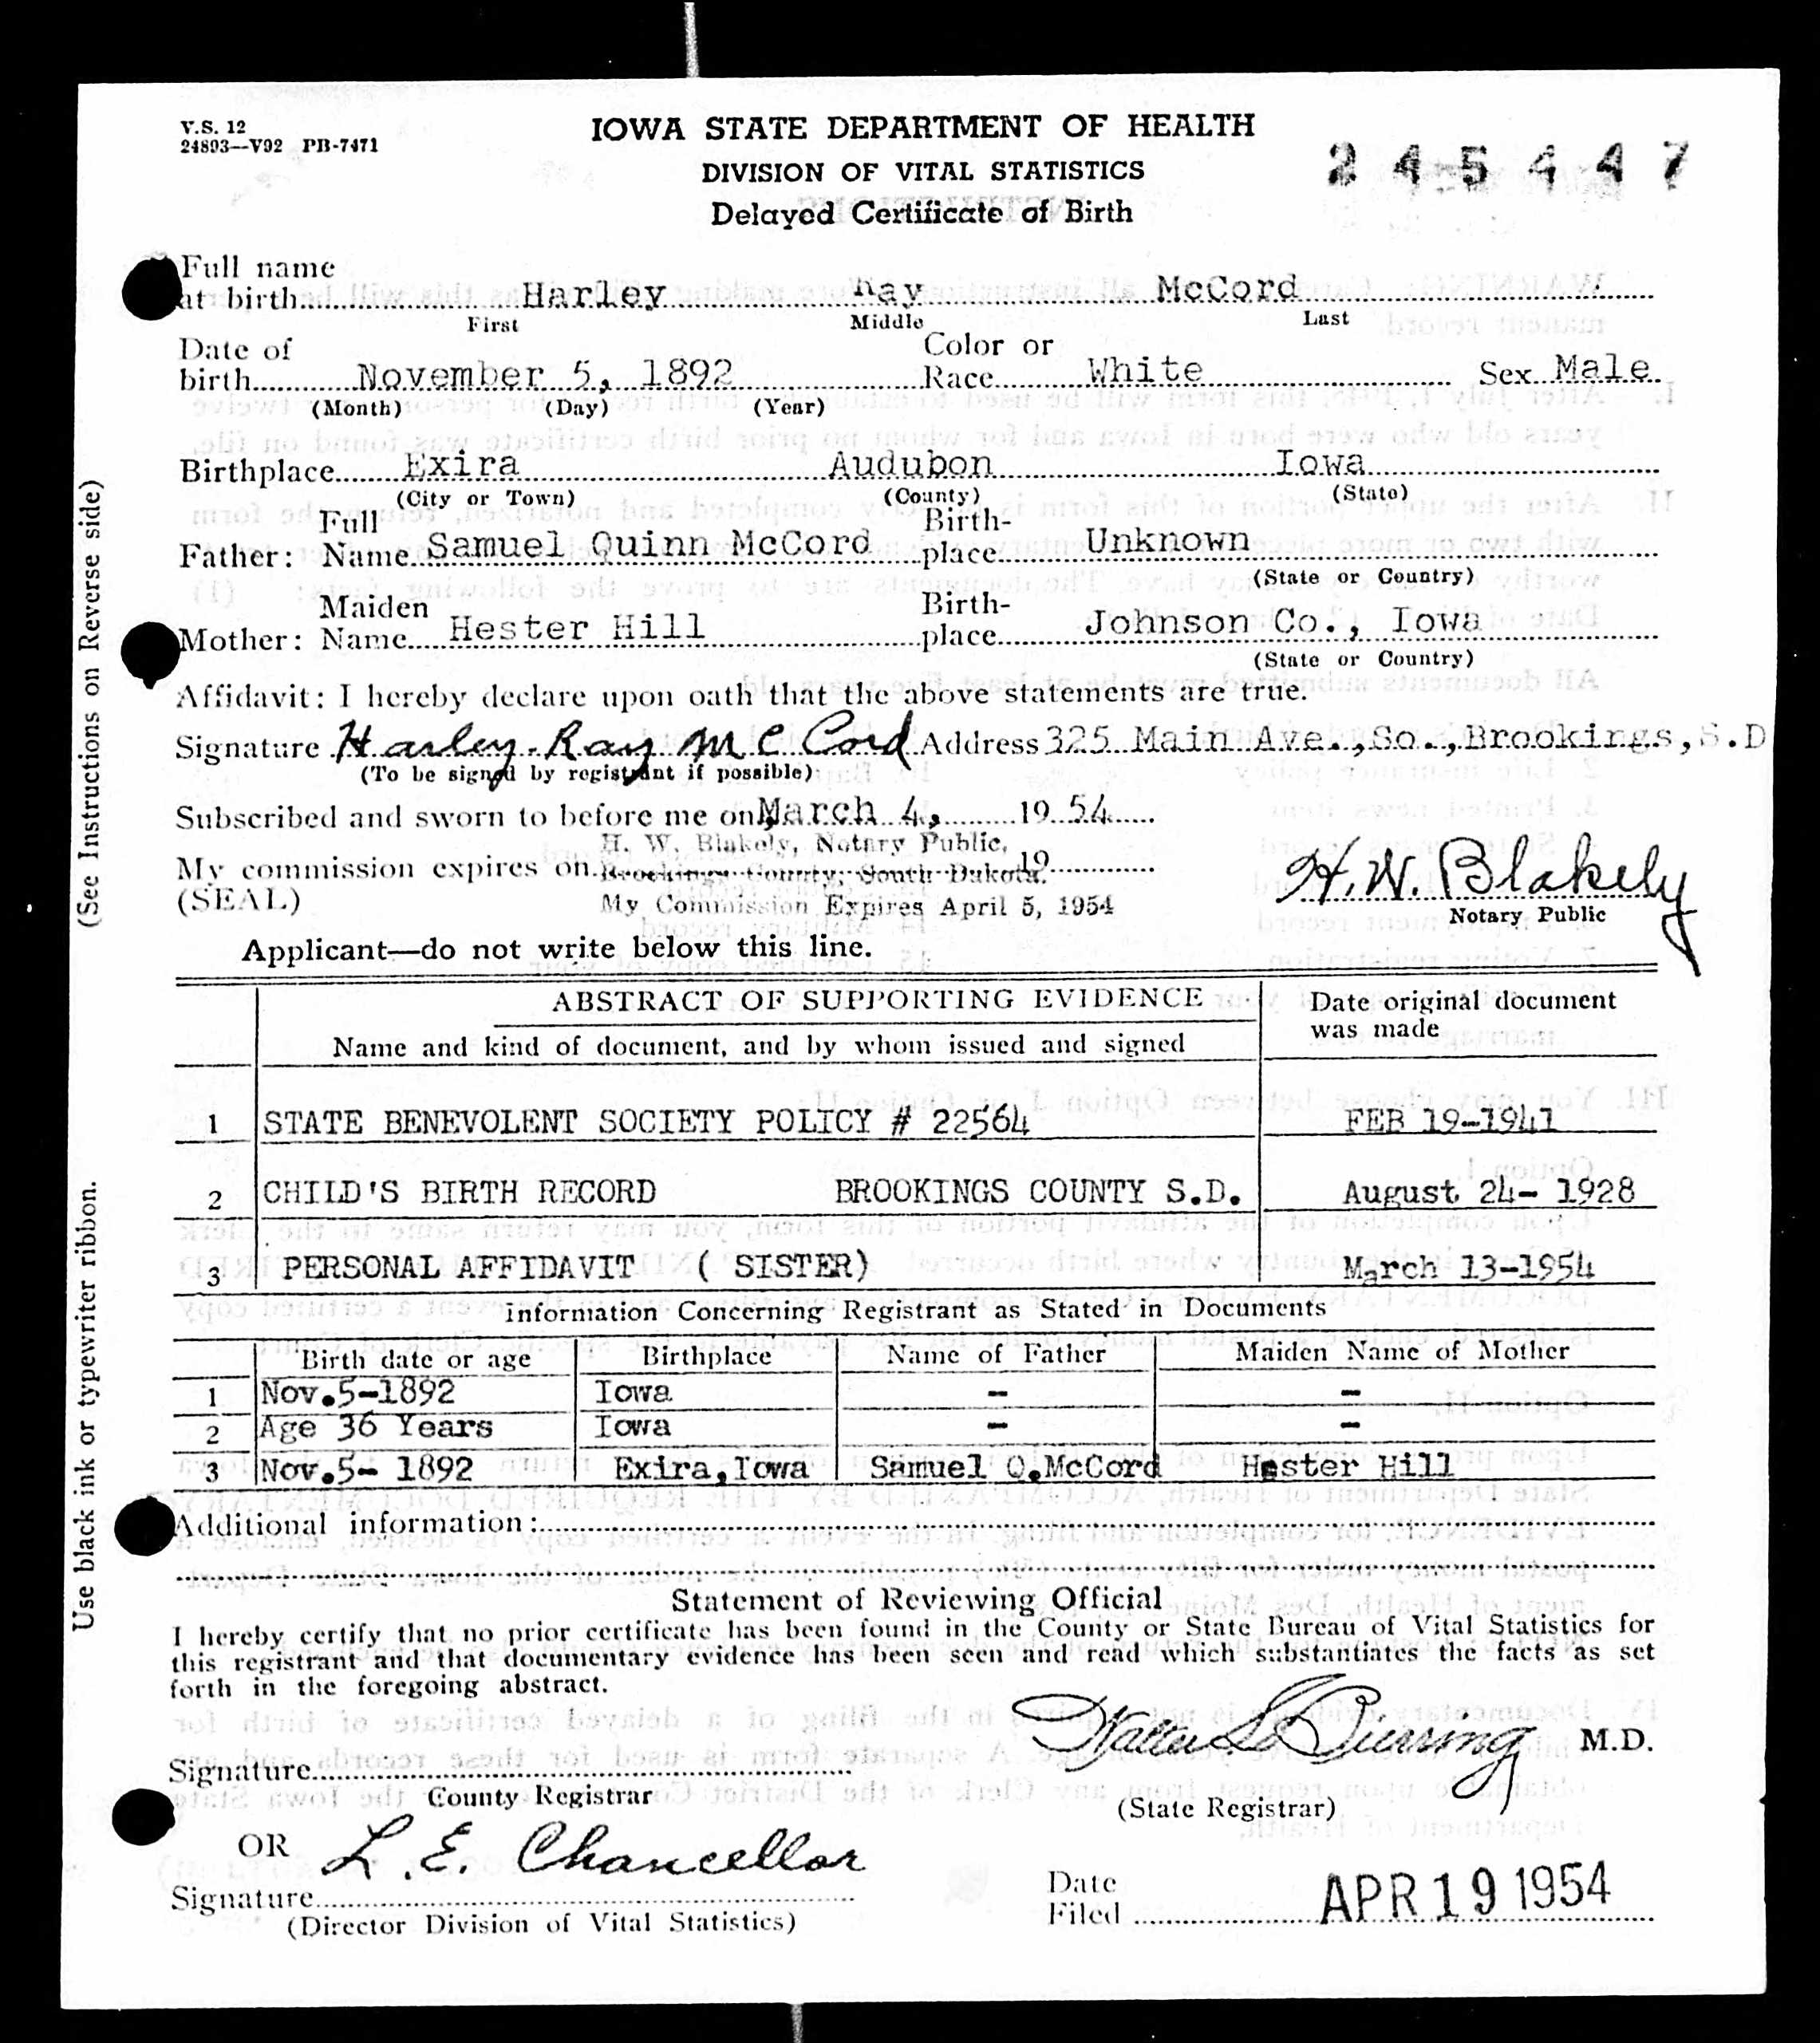 V.S. 12
24893—V92 PB-7471
IOWA STATE DEPARTMENT OF HEALTH
DIVISION OF VITAL STATISTICS
Delayed Certificate of Birth
245447
Full name
at birth Harley Ray McCord
First Middle Last
Date of birth November 5, 1892 Color or Race White Sex Male
(Month) (Day) (Year)
Birthplace Exira Audubon Iowa
(City or Town) (County) (State)
Father: Full Name Samuel Quinn McCord Birth-place Unknown
(State or Country)
Mother: Maiden Name Hester Hill Birth-place Johnson Co., Iowa
(State or Country)
Affidavit: I hereby declare upon oath that the above statements are true.
Signature Harley Ray McCord Address 325 Main Ave.,So.,Brookings,S.D
(To be signed by registrant if possible)
Subscribed and sworn to before me on March 4, 19 54
H. W. Blakely, Notary Public,
My commission expires on Brookings County, South Dakota. 19
(SEAL) My Commission Expires April 5, 1954
H.W. Blakely
Notary Public
Applicant—do not write below this line.
ABSTRACT OF SUPPORTING EVIDENCE
Name and kind of document, and by whom issued and signed
Date original document was made
1 STATE BENEVOLENT SOCIETY POLICY # 22564 FEB 19-1941
2 CHILD'S BIRTH RECORD BROOKINGS COUNTY S.D. August 24- 1928
3 PERSONAL AFFIDAVIT ( SISTER) March 13-1954
Information Concerning Registrant as Stated in Documents
Birth date or age Birthplace Name of Father Maiden Name of Mother
1 Nov.5-1892 Iowa - -
2 Age 36 Years Iowa - -
3 Nov.5- 1892 Exira,Iowa Samuel Q.McCord Hester Hill
Additional information:
Statement of Reviewing Official
I hereby certify that no prior certificate has been found in the County or State Bureau of Vital Statistics for
this registrant and that documentary evidence has been seen and read which substantiates the facts as set
forth in the foregoing abstract.
Signature
County Registrar
Walter M.D.
(State Registrar)
OR
L. E. Chancellor
Signature
(Director Division of Vital Statistics)
Date Filed APR 19 1954
(See Instructions on Reverse side)
Use black ink or typewriter ribbon.